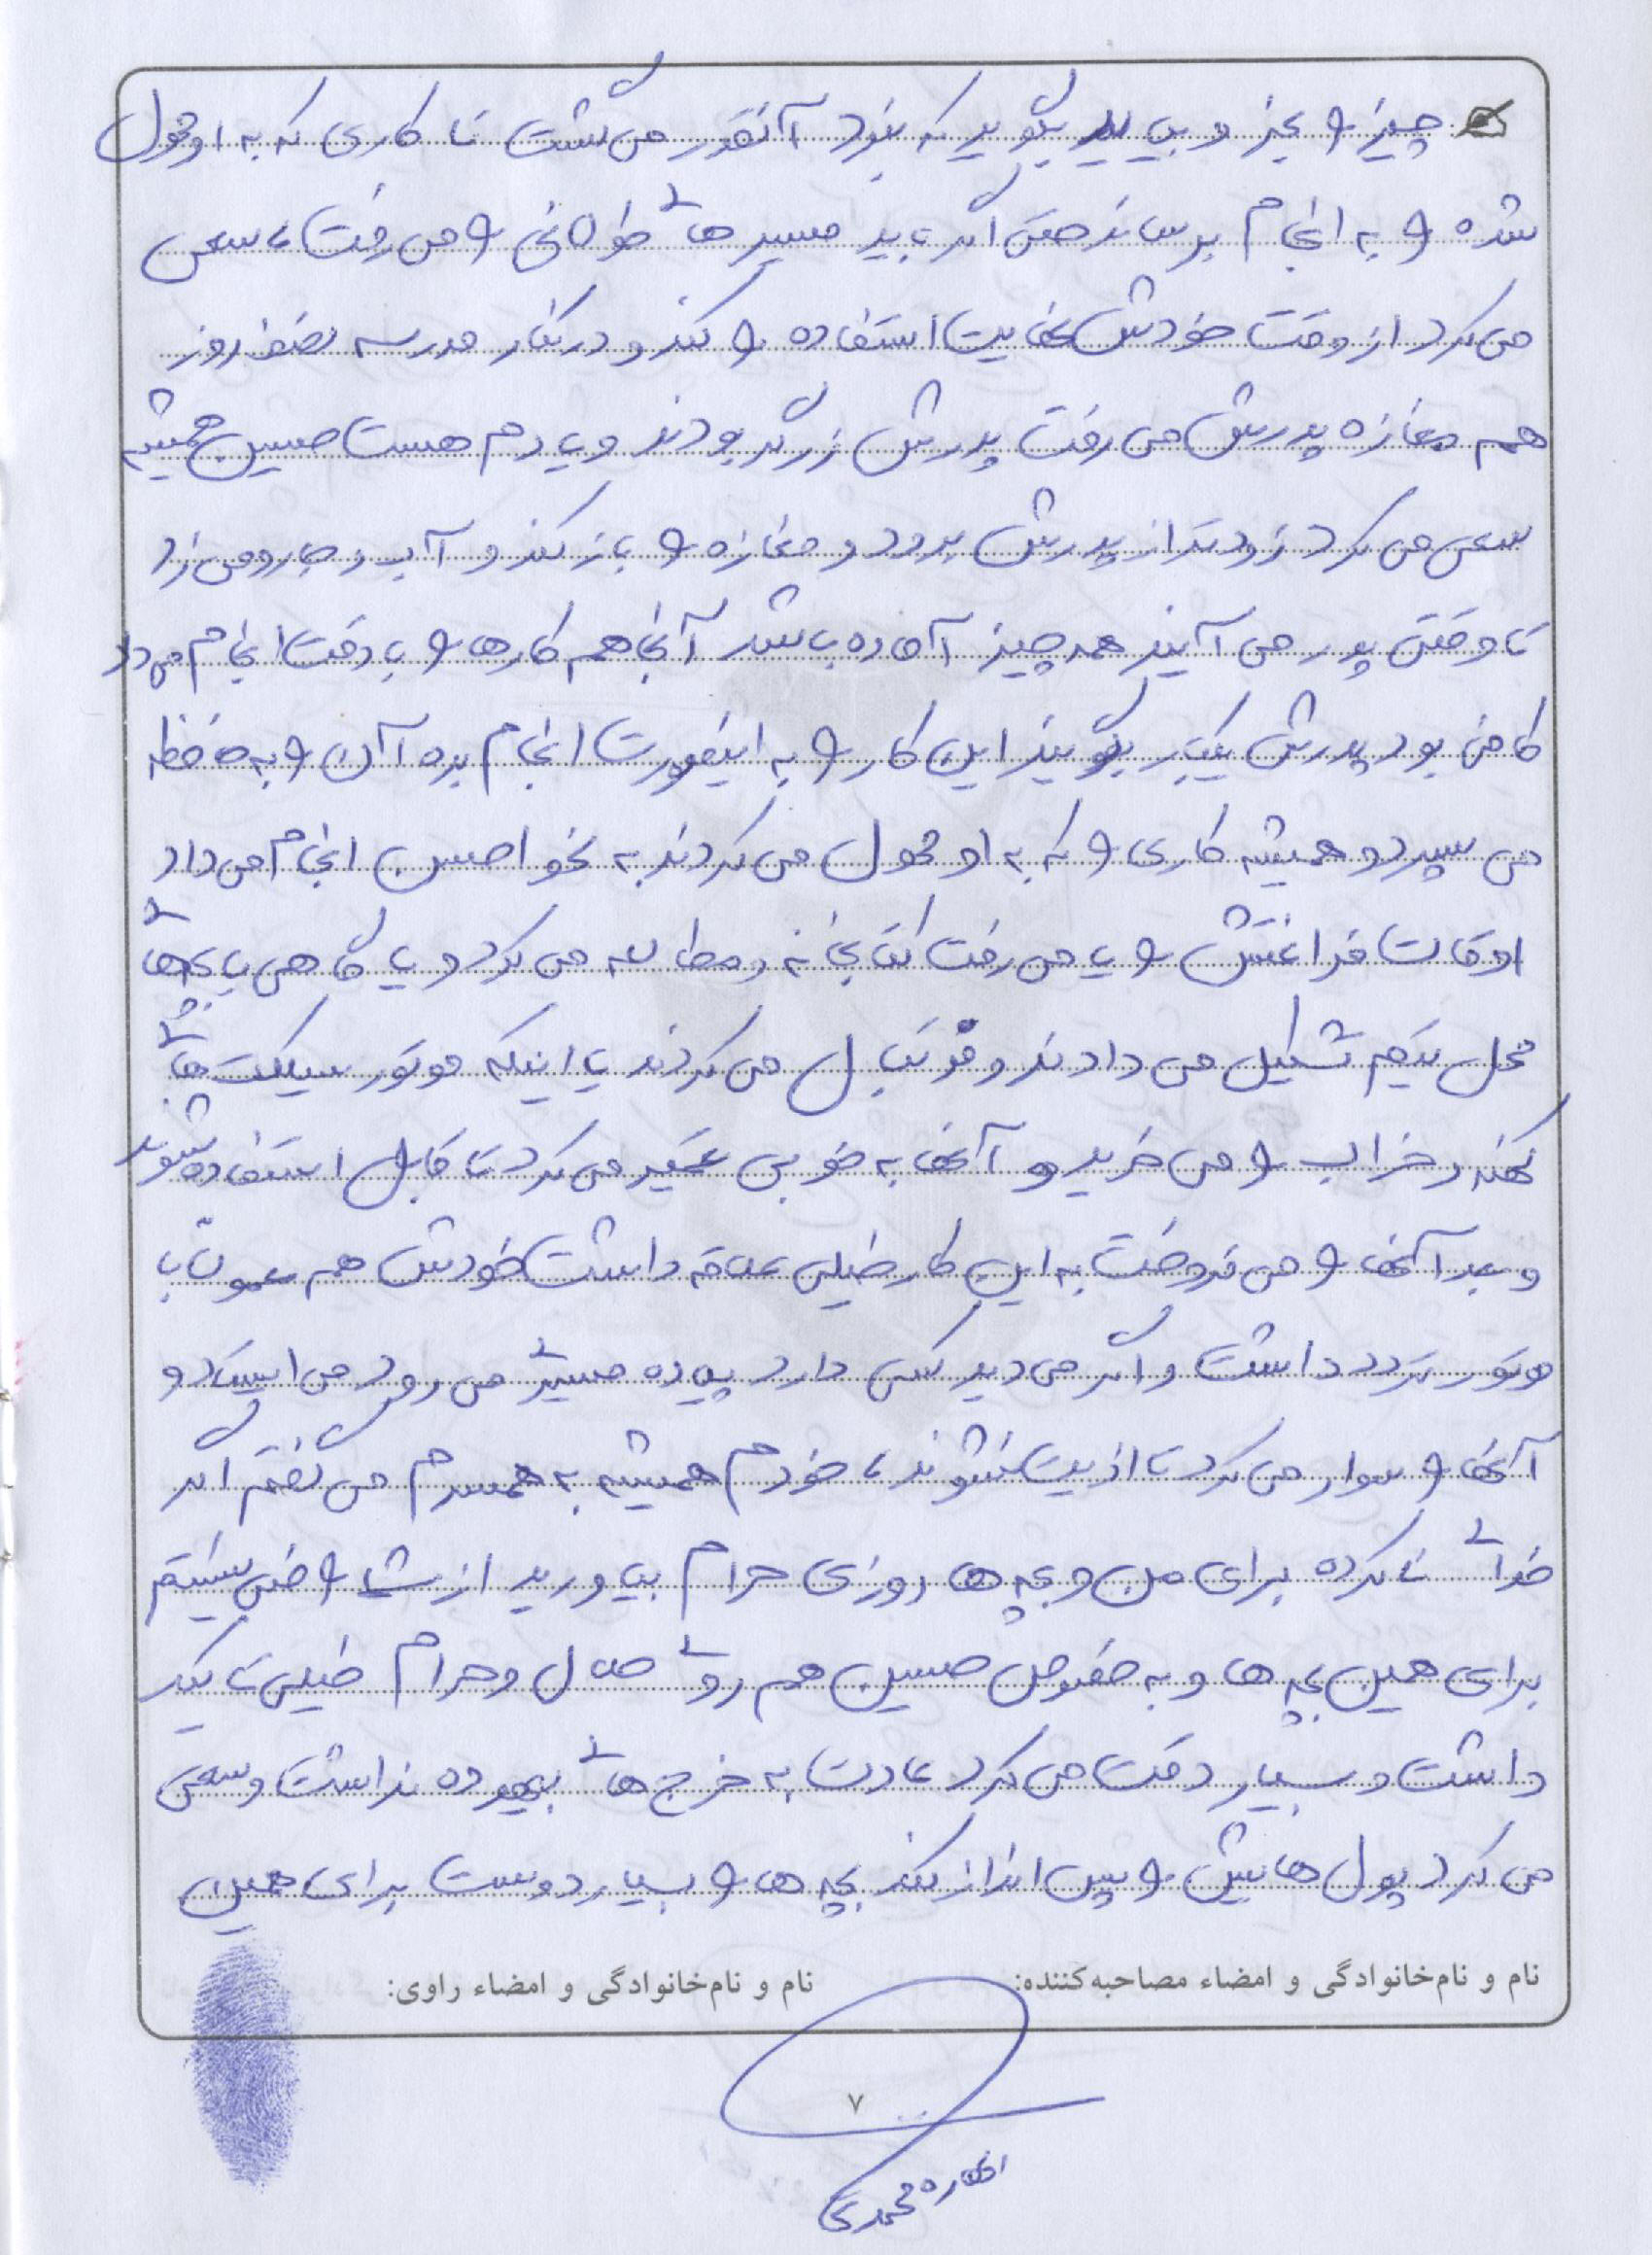 چیز و بخر و بیا بگوید که نبود آنقدر می‌گشت تا کاری که به او محول
شده و به انجام برساند حتی اگر باید مسیرهای طولانی و می‌رفت، سعی
می‌کرد از وقت خودش نهایت استفاده و بکند و در کنار مدرسه نصف روز
هم مغازه پدرش می‌رفت پدرش زرگر بودند و یادم هست حسین همیشه
سعی می‌کرد زودتر از پدرش برود و مغازه و باز کند و آب و جارو می‌زد
تا وقتی پدر می‌آیند همه چیز آماده باشد آنجا هم کارها و با دقت انجام می‌داد
کافی بود پدرش یکبار بگویند این کار و به اینصورت انجام بده آن و به حافظه
می‌سپرد و همیشه کاری و که به او محول می‌کردند به نحو احسن انجام می‌داد
اوقات فراغتش و یا می‌رفت کتابخانه و مطالعه می‌کرد و یا گاهی با بچه‌های
محل تیم تشکیل می‌دادند و فوتبال می‌کردند یا اینکه موتور سیکلت‌های
کهنه و خراب و می‌خرید و آنها به خوبی تعمیر می‌کرد تا قابل استفاده شوند
و بعد آنها و می‌فروخت به این کار خیلی علاقه داشت خودش هم معمولا با
موتور تردد داشت و اگر می‌دید کسی دارد پیاده مسیری می‌رود می‌ایستاد و
آنها و سوار می‌کرد تا اذیت نشوند، خودم همیشه به همسرم می‌گفتم اگر
خدای ناکرده برای من و بچه‌ها روزی حرام بیاورید از شما راضی نیستم
برای همین بچه‌ها و به خصوص حسین هم روی حلال و حرام خیلی تاکید
داشت و بسیار دقت می‌کرد عادت به خرج‌های بیهوده نداشت و سعی
می‌کرد پول‌هایش و پس انداز بکند بچه‌ها و بسیار دوست برای همین
نام و نام‌خانوادگی و امضاء مصاحبه‌کننده: نام و نام‌خانوادگی و امضاء راوی:
۷
محمدی